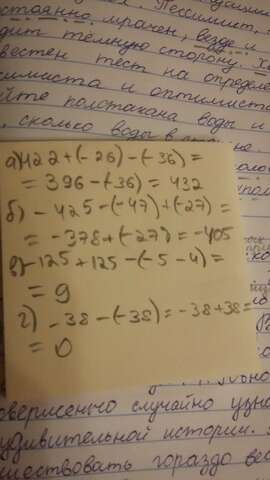 стоянно мрачен, везде и
дит тёмную сторону.
вестен тест на определе
симиста и оптимист
йте полстакана воды и
сколько воды в
а) 422 + (- 26) - (- 36) =
= 396 - (-36) = 432
б) - 425 - (-47) + (-27) =
= -378 + (-27) = -405
в) -125 + 125 - (-5 - 4) =
= 9
г) - 38 - (-38) = -38 + 38 =
= 0
овершенно случайно узна
удивительной истории.
шествовать гораздо вес